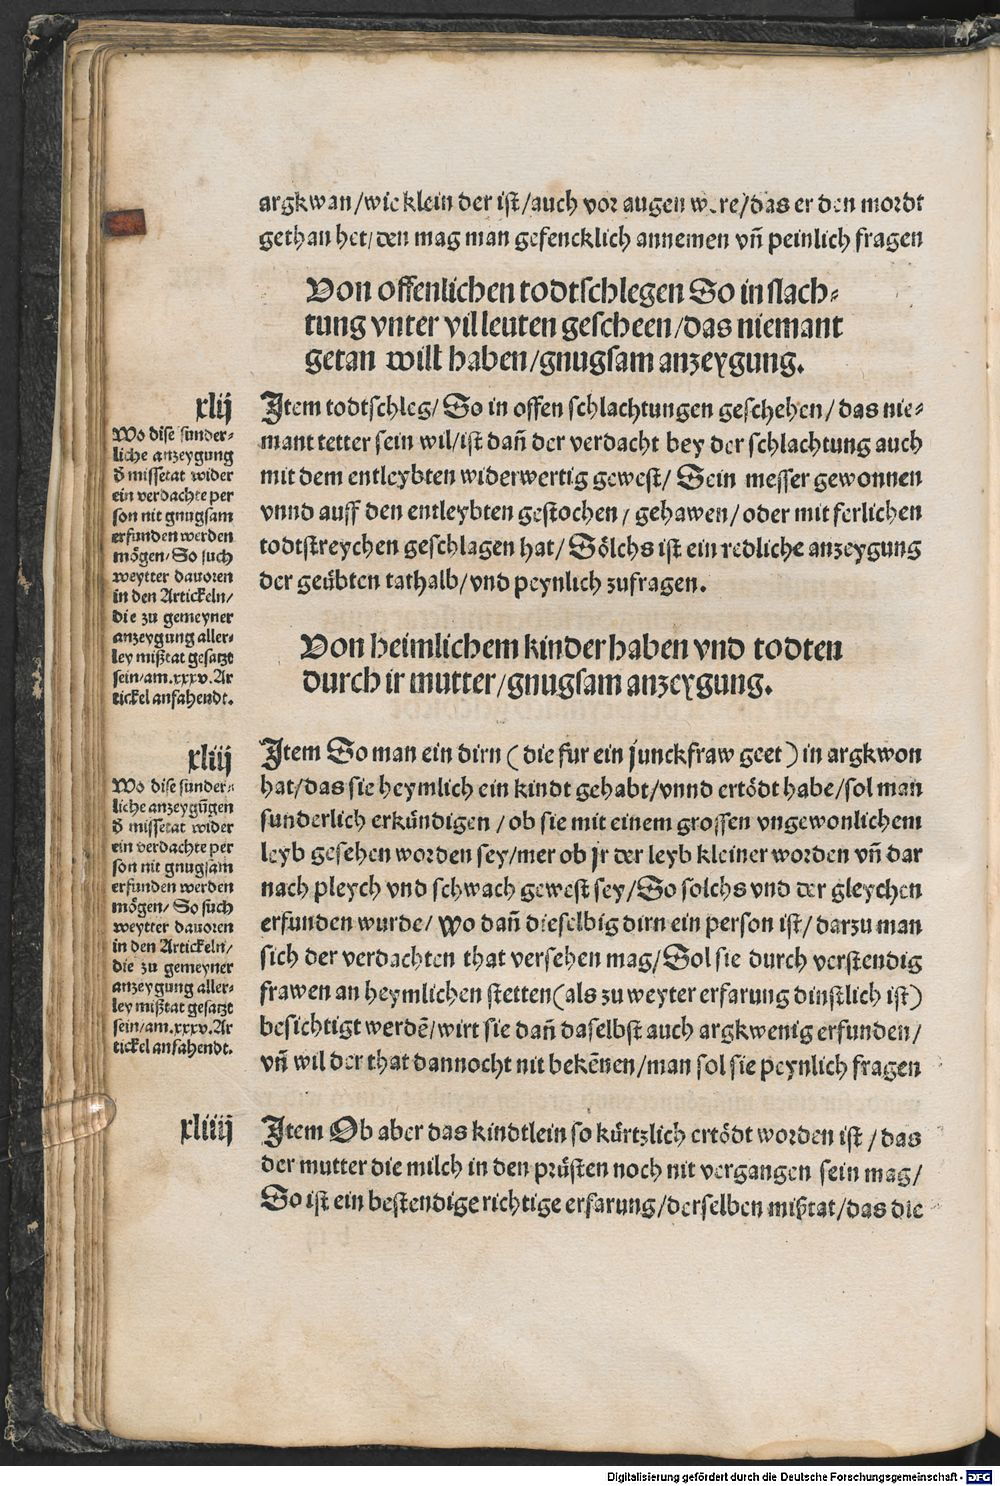 argkwan/wie klein der ist/auch vor augen were/das er den mordt
gethan het/den mag man gefencklich annemen vñ peinlich fragen
Von offenlichen todtschlegen So in slach-
tung vnter vil leuten gescheen/das niemant
getan will haben/gnugsam anzeygung.
xlij
Item todtschleg/ So in offen schlachtungen geschehen/ das nie-
mant tetter sein wil/ist dañ der verdacht bey der schlachtung auch
mit dem entleybten widerwertig gewest/ Sein messer gewonnen
vnnd auff den entleybten gestochen/ gehawen/ oder mit ferlichen
todtstreychen geschlagen hat/ Sölchs ist ein redliche anzeygung
der geübten tathalb/vnd peynlich zufragen.
Wo dise sunder-
liche anzeygung
d̄ missetat wider
ein verdachte per
son nit gnugsam
erfunden werden
mögen/ So such
weytter dauoren
in den Artickeln/
die zu gemeyner
anzeygung aller-
ley mißtat gesatzt
sein/am.xxxv.Ar
tickel anfahendt.
Von heimlichem kinder haben vnd todten
durch ir mutter/gnugsam anzeygung.
xliij
Item So man ein dirn ( die fur ein junckfraw geet ) in argkwon
hat/das sie heymlich ein kindt gehabt/vnnd ertödt habe/sol man
sunderlich erkündigen /ob sie mit einem grossen vngewonlichem
leyb gesehen worden sey/mer ob jr der leyb kleiner worden vñ dar
nach pleych vnd schwach gewest sey/So solchs vnd der gleychen
erfunden wurde/ Wo dañ dieselbig dirn ein person ist/ darzu man
sich der verdachten that versehen mag/Sol sie durch verstendig
frawen an heymlichen stetten(als zu weyter erfarung dinstlich ist)
besichtigt werdē/wirt sie dañ daselbst auch argkwenig erfunden/
vñ wil der that dannocht nit bekēnen/man sol sie peynlich fragen
Wo dise sunder-
liche anzeygūgen
d̄ missetat wider
ein verdachte per
son nit gnugsam
erfunden werden
mögen/ So such
weytter dauoren
in den Artickeln/
die zu gemeyner
anzeygung aller-
ley mißtat gesatzt
sein/am.xxxv.Ar
tickel anfahendt.
xliiij
Item Ob aber das kindtlein so kürtzlich ertödt worden ist /das
der mutter die milch in den prüsten noch nit vergangen sein mag/
So ist ein bestendige richtige erfarung/derselben mißtat/das die
Digitalisierung gefördert durch die Deutsche Forschungsgemeinschaft - DFG